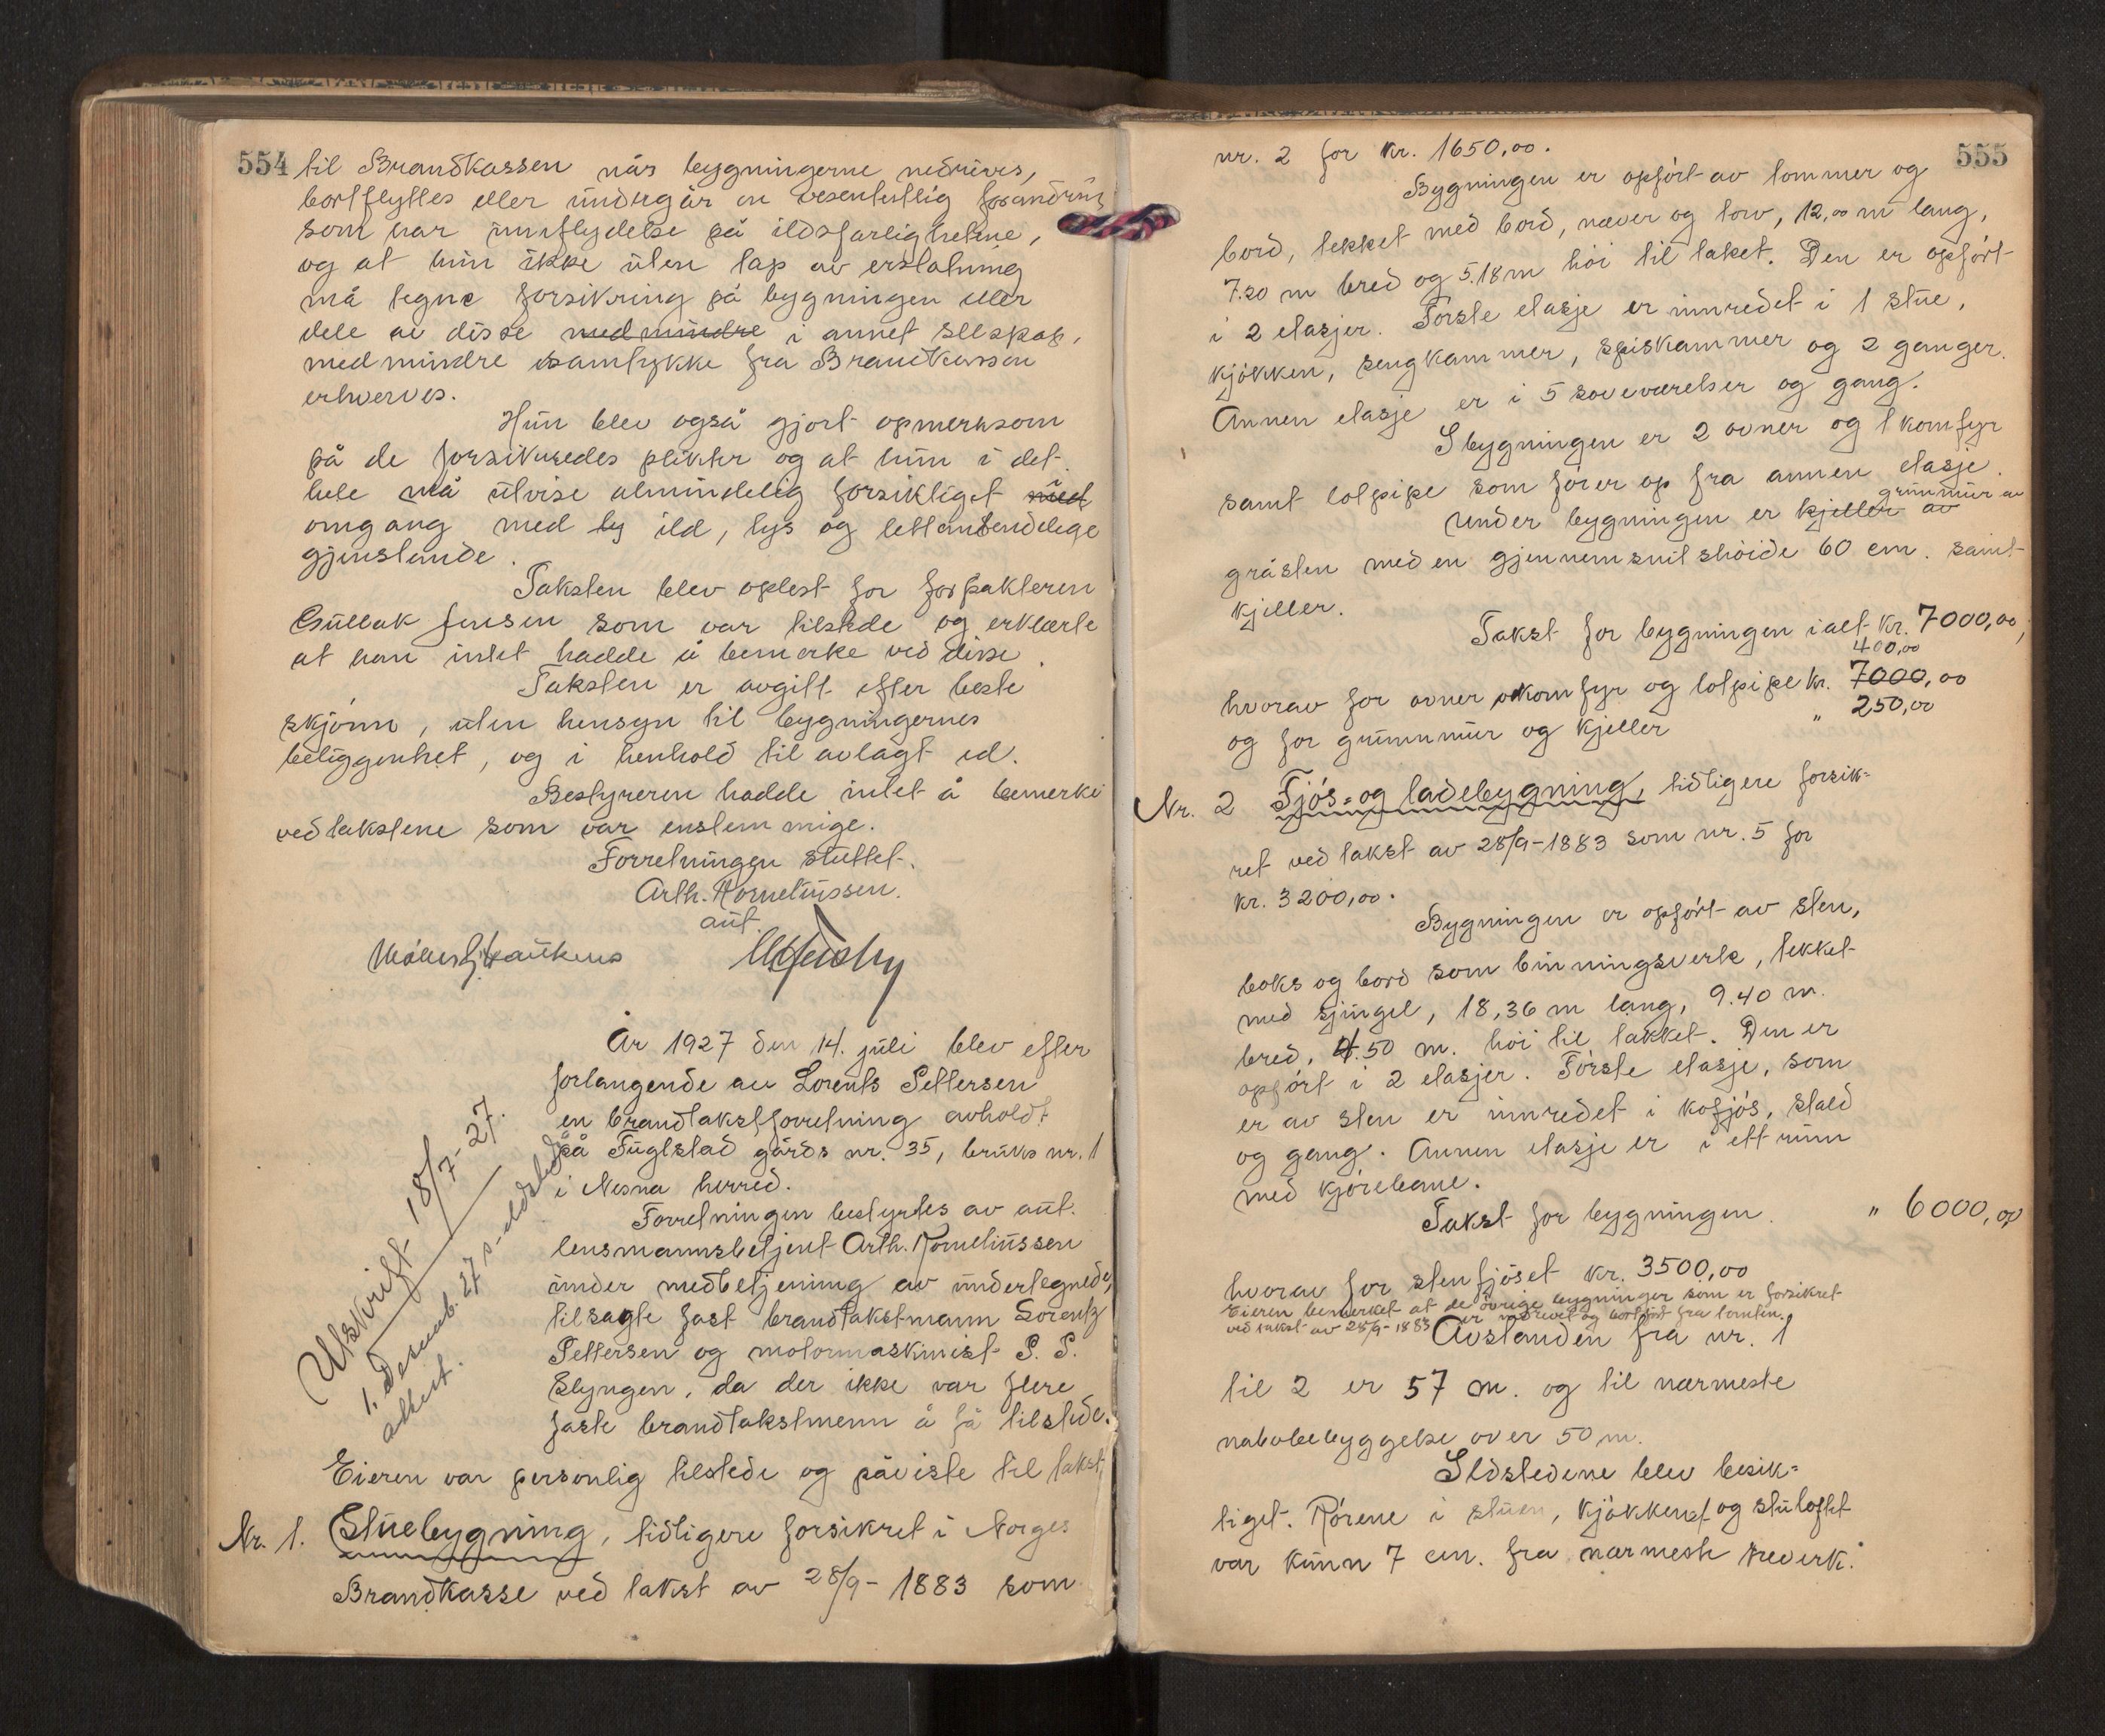 554
til Brandkassen når bygningerne nedrives,
bortflyttes eller undergår en vesentlig forandring
som har innflydelse på ildsfarligheten,
og at hun ikke uten tap av erstatning
må tegne forsikring på bygningen eller
dele av disse medmindre i annet selskap,
medmindre samtykke fra Brandkassen
erhverves.
Hun blev også gjort opmerksom
på de forsikredes plikter og at hun i det
hele må utvise almindelig forsiktiget med i
omgang med ly ild, lys og lettantendelege
gjenstande.
Taksten blev oplest for forpakteren
Gullak Jensen som var tilstede og erklærte
at han intet hadde å bemerke ved disse.
Taksten er avgitt efter beste
skjønn, uten hensyn til bygningernes
beliggenhet, og i henhold til avlagt ed.
Bestyreren hadde intet å bemerke
ved takstene som var enstemmige.
Forretningen sluttet.
Arth. Kornelinssen.
aut.
År 1927 den 14. juli blev efter
forlangende av Lorents Pettersen
en brandtakstforretning avholdt
på Fuglstad gårds nr. 35, bruks nr. 1
i Nesna herred.
Forretningen bestyrtes av aut.
lensmannsbetjent Arth. Kornelinssen
under medbetjening av undertegnede,
tilsagte fast brandtakstmann Lorentz
Pettersen og motormaskinist P. P.
Slyngen, da der ikke var flere
faste brandtakstmenn å få tilstede.
Utskrift 18/7-27.
1. Desemb. 27
attest.
Eieren var personlig tilstede og påviste til takst
Nr. 1. Stuebygning, tidligere forsikret i Norges
Brandkasse ved takst av 28/9-1883 som
555
nr. 2 for kr. 1650,00.
Bygningen er opført av tømmer og
bord, tekket med bord, never og torv, 12,00 m lang,
7.20 m bred og 5.18 m høi til taket. Den er opført
i 2 etasjer. Første etasje er innredet i 1 stue,
kjøkken, sengkammer, spiskammer og 2 ganger.
Annen etasje er i 5 soveværelser og gang.
I bygningen er 2 ovner og 1 komfyr
samt lofpipe som fører op fra annen etasje.
grunnmur av
Under bygningen er kjeller av
gråsten med en gjennemsnitshøide 60 cm. samt
kjeller.
Takst for bygningen ialt kr. 7000,00,
400,00
hvorav for ovner komfyr og lofpipe kr. 7000,00
og for grunnmur og kjeller " 250,00
Nr. 2 Fjøs- og ladebygning, tidligere forsik-
ret ved takst av 28/9-1883 som nr. 5 for
kr. 3200,00.
Bygningen er opført av sten,
boks og bord som binningsverk, tekket
med sjingel, 18,36 m lang, 9.40 m.
bred, 4.50 m. høi til takket. Den er
opført i 2 etasjer. Første etasje, som
er av sten er innredet i kofjøs, stald
og gang. Annen etasje er i ett rum
med kjørebane.
Takst for bygningen. " 6000,00
hvorav for stenfjøset kr. 3500,00
Eieren bemerket at de øvrige bygninger som er forsikret
ved takst av 28/9-1883 er nedrevet og bortført fra tomten.
Avstanden fra nr. 1
til 2 er 57 m. og til nærmeste
nabobebyggelse over 50 m.
Ildstedene blev besik-
tiget. Rørene i stuen, kjøkkenet og stuloftet
var kunn 7 cm. fra nærmeste treverk.